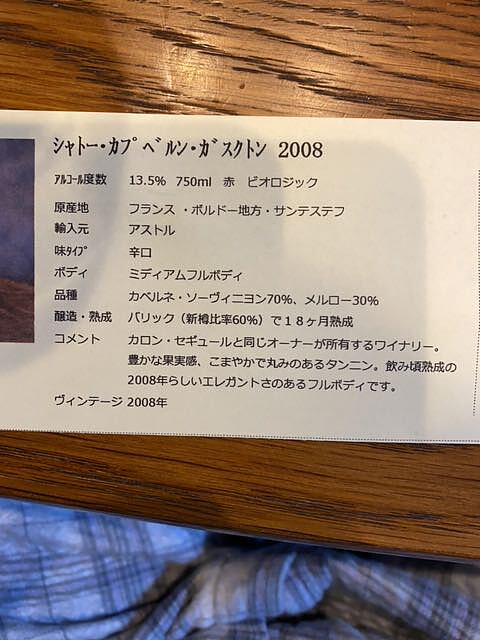 シャトー・カプベルン・ガスクトン 2008
アルコール度数 13.5% 750ml 赤 ビオロジック
原産地 フランス ・ボルドー地方・サンテステフ
輸入元 アストル
味タイプ 辛口
ボディ ミディアムフルボディ
品種 カベルネ・ソーヴィニヨン70%、メルロー30%
醸造・熟成 バリック（新樽比率60%）で１８ヶ月熟成
コメント カロン・セギュールと同じオーナーが所有するワイナリー。
豊かな果実感、こまやかで丸みのあるタンニン。飲み頃熟成の
2008年らしいエレガントさのあるフルボディです。
ヴィンテージ 2008年